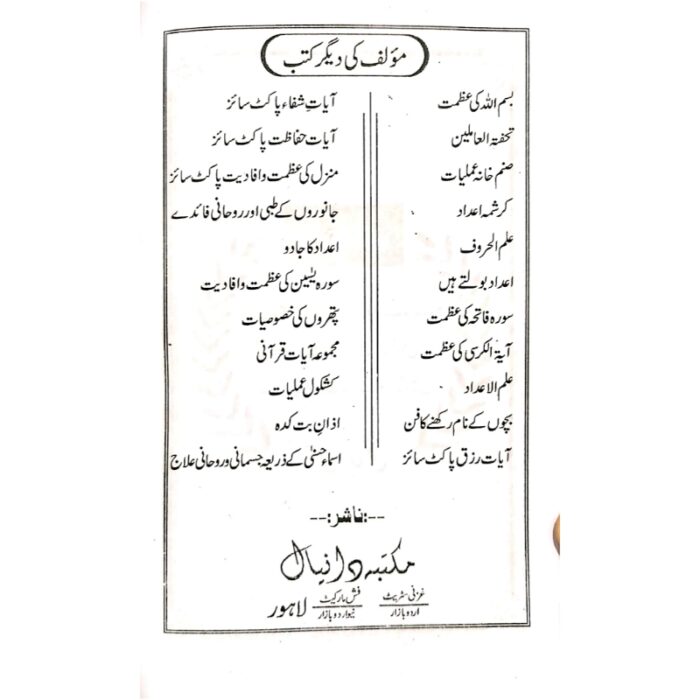 مؤلف کی دیگر کتب
بسم اللہ کی عظمت
تحفۃ العاملین
صنم خانہ عملیات
کرشمہ اعداد
علم الحروف
اعداد بولتے ہیں
سورہ فاتحہ کی عظمت
آیۃ الکرسی کی عظمت
علم الاعداد
بچوں کے نام رکھنے کا فن
آیات رزق پاکٹ سائز
آیاتِ شفاء پاکٹ سائز
آیات حفاظت پاکٹ سائز
منزل کی عظمت و افادیت پاکٹ سائز
جانوروں کے طبی اور روحانی فائدے
اعداد کا جادو
سورہ یٰسین کی عظمت و افادیت
پتھروں کی خصوصیات
مجموعہ آیات قرآنی
کشکول عملیات
اذانِ بت کدہ
اسماء حسنیٰ کے ذریعہ جسمانی و روحانی علاج
--:ناشر:--
مکتبہ دانیال
غزنی سٹریٹ اردو بازار فش مارکیٹ نیو اردو بازار لاہور